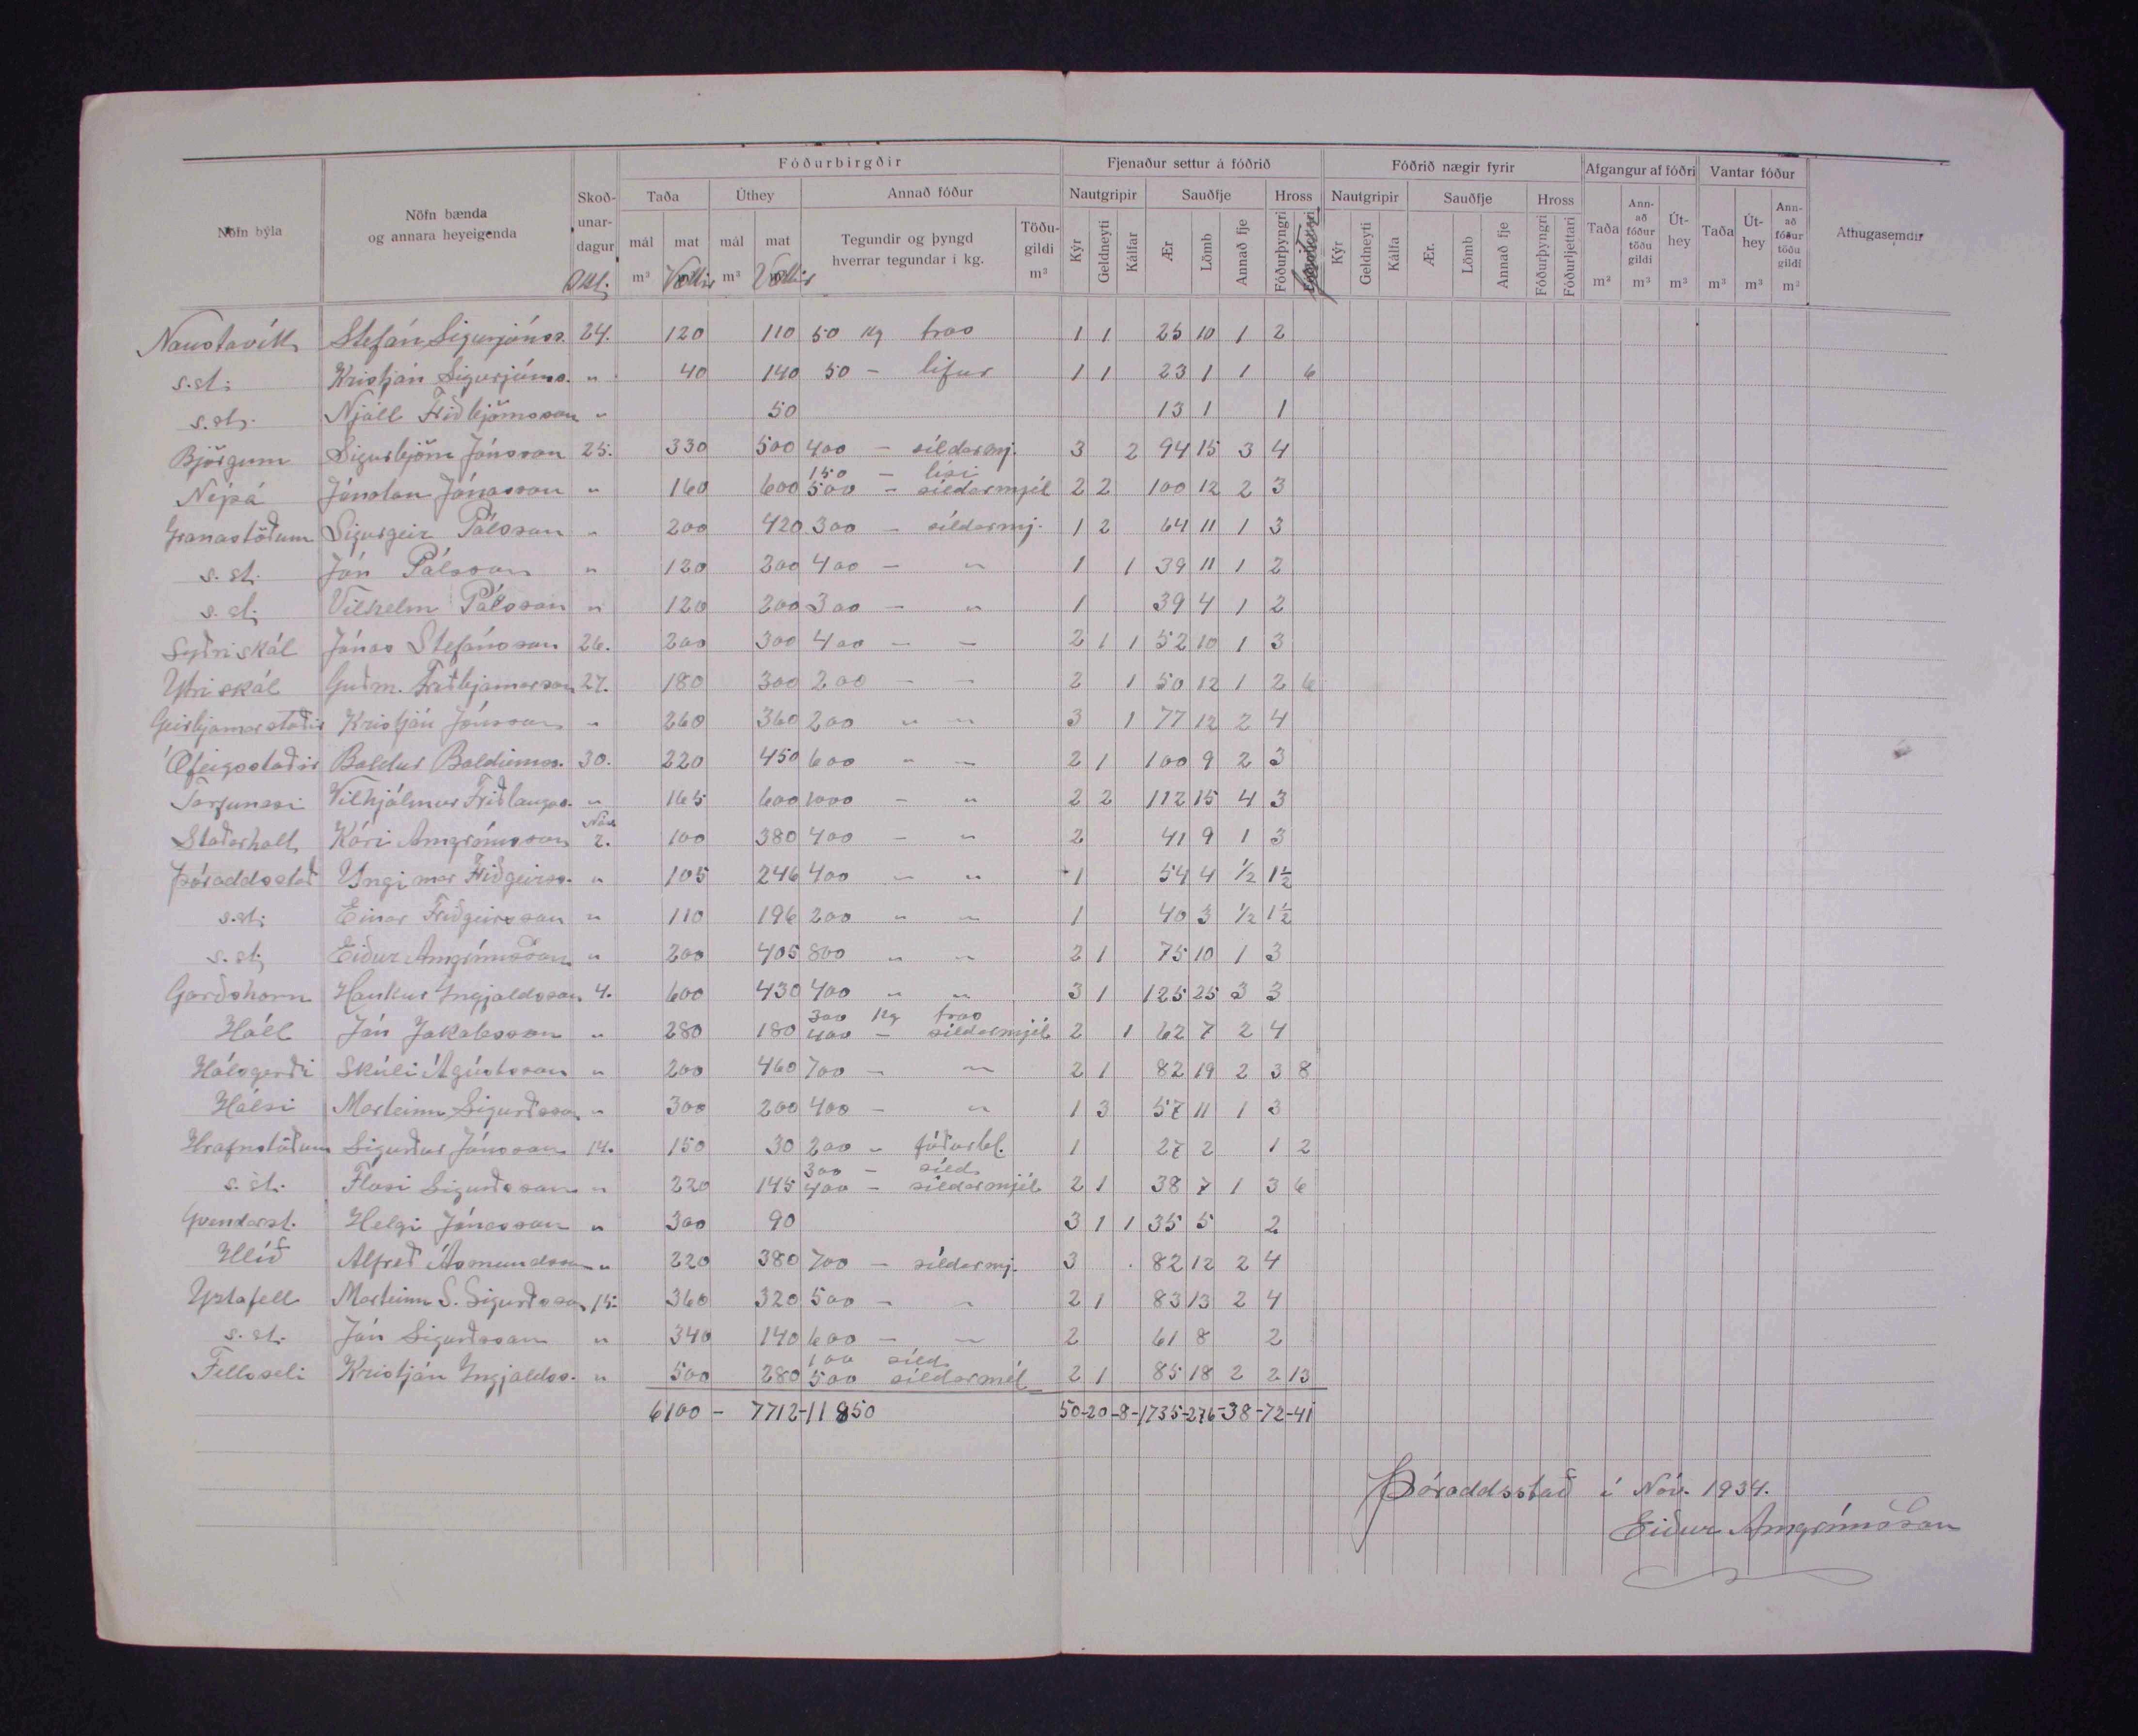 Fóðurbirgðir Fjenaður settur á fóðrið Fóðrið nægir fyrir Afgangur af fóðri Vantar fóður
Nöfn býla Nöfn bænda og annara heyeigenda Skoðunardagur Taða Úthey Annað fóður Nautgripir Sauðfje Hross Nautgripir Sauðfje Hross Taða Annað fóður töðu gildi Úthey Taða Úthey Annað fóður töðu gildi Athugasemdir
mál mat mál mat Tegundir og þyngd hverrar tegundar í kg. Töðugildi m³ Kýr Geldneyti Kálfar Ær Lömb Annað fje Fóðurþyngri Kýr Geldneyti Kálfa Ær. Lömb Annað fje Fóðurþyngri Fóðurljettari
Okt. m³ Vættir m³ Vættir m³ m³ m³ m³ m³ m³
Naustavík Stefán Sigurjónss. 24. 120 110 50 kg tros 1 1 25 10 1 2
s.st. Kristján Sigurjónss. " 40 140 50 - lifur 1 1 23 1 1 6
s.st. Njáll Friðbjörnsson " 50 13 1 1
Björgum Sigurbjörn Jónsson 25. 330 500 400 - síldarmj. 3 2 94 15 3 4
150 - lísi
Nípá Jónatan Jónasson " 160 600 500 - síldarmjöl 2 2 100 12 2 3
Granastöðum Sigurgeir Pálsson " 200 420 300 - síldarmj. 1 2 64 11 1 3
s.st. Jón Pálsson " 120 200 400 - " 1 1 39 11 1 2
s.st. Vilhelm Pálsson " 120 200 300 - " 1 39 4 1 2
Syðriskál Jónas Stefánsson 26. 200 300 400 - - 2 1 1 52 10 1 3
Ytriskál Guðm. Friðbjarnarson 27. 180 300 200 - - 2 1 50 12 1 2 6
Geirbjarnarstaðir Kristján Jónsson " 260 360 200 " " 3 1 77 12 2 4
Ófeigsstaðir Baldur Baldvinss. 30. 220 450 600 " - 2 1 100 9 2 3
Torfunesi Vilhjálmur Friðlaugss. " 165 600 1000 - " 2 2 112 15 4 3
Nóv.
Staðarholt Kári Arngrímsson 2. 100 380 400 - " 2 41 9 1 3
Þóroddsstað Yngimar Friðgeirss. " 105 246 400 - " 1 54 4 ½ 1½
s.st. Einar Friðgeirsson " 110 196 200 " - 1 40 3 ½ 1½
s.st. Eiður Arngrímsson " 200 405 800 " - 2 1 75 10 1 3
Garðshorn Haukur Ingjaldsson 4. 600 430 400 " " 3 1 125 25 3 3
300 kg tros
Hóll Jón Jakobsson " 280 180 400 - síldarmjöl 2 1 62 7 2 4
Hálsgerði Skúli Ágústsson " 200 460 700 - " 2 1 82 19 2 3 8
Hálsi Marteinn Sigurðsson " 300 200 400 - " 1 3 57 11 1 3
Hrafnstöðum Sigurður Jónsson 14. 150 30 200 - fóðurbl. 1 27 2 1 2
300 - síld
s.st. Flosi Sigurðsson " 220 145 400 - síldarmjöl 2 1 38 7 1 3 6
Gvendarst. Helgi Jónasson " 300 90 3 1 1 35 5 2
Hlíð Alfreð Ásmundsson " 220 380 700 - síldarmj. 3 82 12 2 4
Yztafell Marteinn S. Sigurðsson 15. 360 320 500 - " 2 1 83 13 2 4
s.st. Jón Sigurðsson " 340 140 600 - " 2 61 8 2
100 síld
Fellsseli Kristján Ingjaldss. " 500 280 500 síldarmél 2 1 85 18 2 2 13
6100 - 7712 - 11850 50-20-8-1735-276-38-72-41
Þóroddsstað í Nóv. 1934.
Eiður Arngrímsson